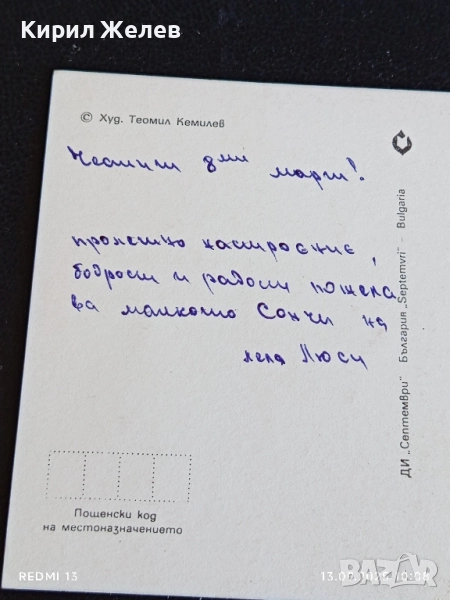 Кирил Желев
© Худ. Теомил Кемилев
Честит 8ми март!
пролетно настроение,
бодрост и радост пожела
ва малкото Сончи на
леля Люси
ДИ „Септември" България „Septemvri" - Bulgaria
Пощенски код
на местоназначението
REDMI 13
BAZAR